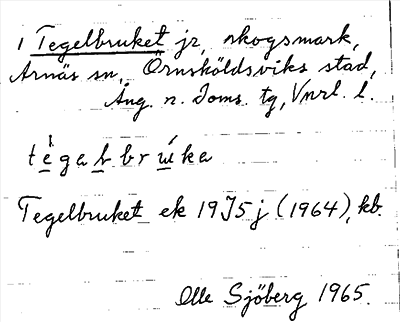 1 Tegelbruket jr, skogsmark,
Arnäs sn, Örnsköldsviks stad,
Ång. n. Doms. tg, Vnrl. l.
tė́gabbrẃka
Tegelbruket ek 19J5j (1964), kb.
Olle Sjöberg 1965.